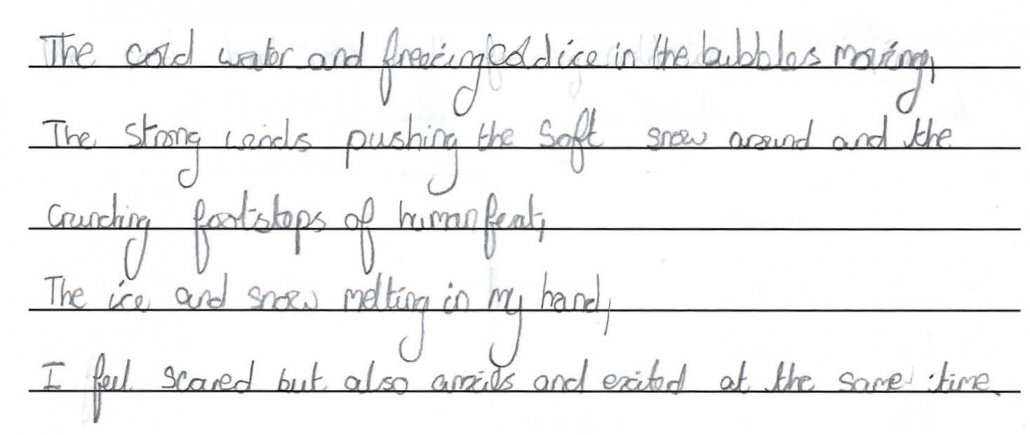 The cold water and freezing cold ice in the bubbles moving,
The strong winds pushing the soft snow around and the
crunching footsteps of human feat,
The ice and snow melting in my hand,
I feel scared but also anxids and exited at the same time